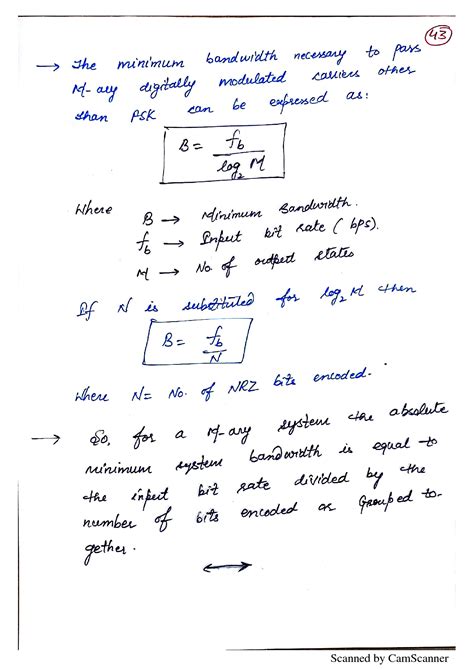 43
→ The minimum bandwidth necessary to pass
M-ary digitally modulated carriers other
than PSK can be expressed as:
B = fb / log2 M
Where B → Minimum Bandwidth.
fb → Input bit rate (bps).
M → No. of output states
If N is substituted for log2 M then
B = fb / N
Where N = No. of NRZ bits encoded.
→ So, for a M-ary system the absolute
minimum system bandwidth is equal to
the input bit rate divided by the
number of bits encoded or Grouped to-
gether.
Scanned by CamScanner